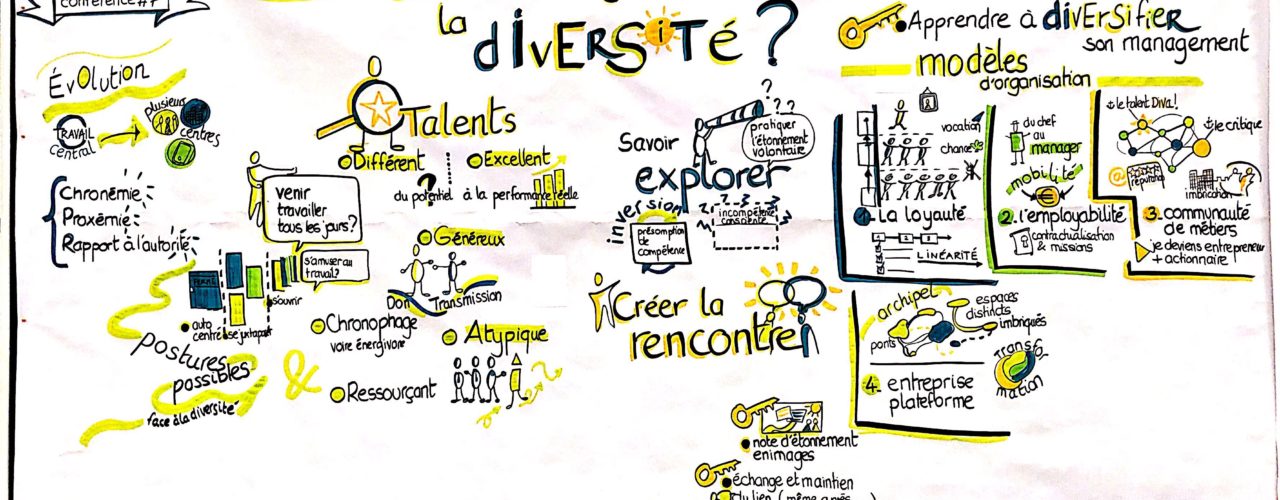 conférence #7
la
diVERSiTé ?
ÉvOlution
TRAVAIL
central
plusieurs
centres
Chronémie
Proxémie
Rapport à l'autorité
venir
travailler
tous les jours?
s'amuser au
travail?
FERMÉ
s'ouvrir
auto
centré
se juxtaposer
postures
possibles
face à la diversité
&
Talents
Différent
Excellent
du potentiel à la performance réelle
?
Généreux
Don
Transmission
Chronophage
voire énergivore
Ressourçant
Atypique
Savoir
explorer
? ? ?
pratiquer
l'étonnement
volontaire
inversion
présomption
de
compétence
incompétence
consciente
Créer la
rencontre
note d'étonnement
en images
échange et maintien
du lien (même après
Apprendre à diVErSifier
son management
modèles
d'organisation
vocation
chance
1. La loyauté
1
2
3
LINÉARITÉ
du chef
au
manager
mobilité
€
2. l'employabilité
contractualisation
& missions
le talent Diva!
le critique
@
réputation
imbrication
3. communauté
de métiers
je deviens entrepreneur
+ actionnaire
archipel
ponts
espaces
distincts
imbriqués
4. entreprise
plateforme
Transfo
mation